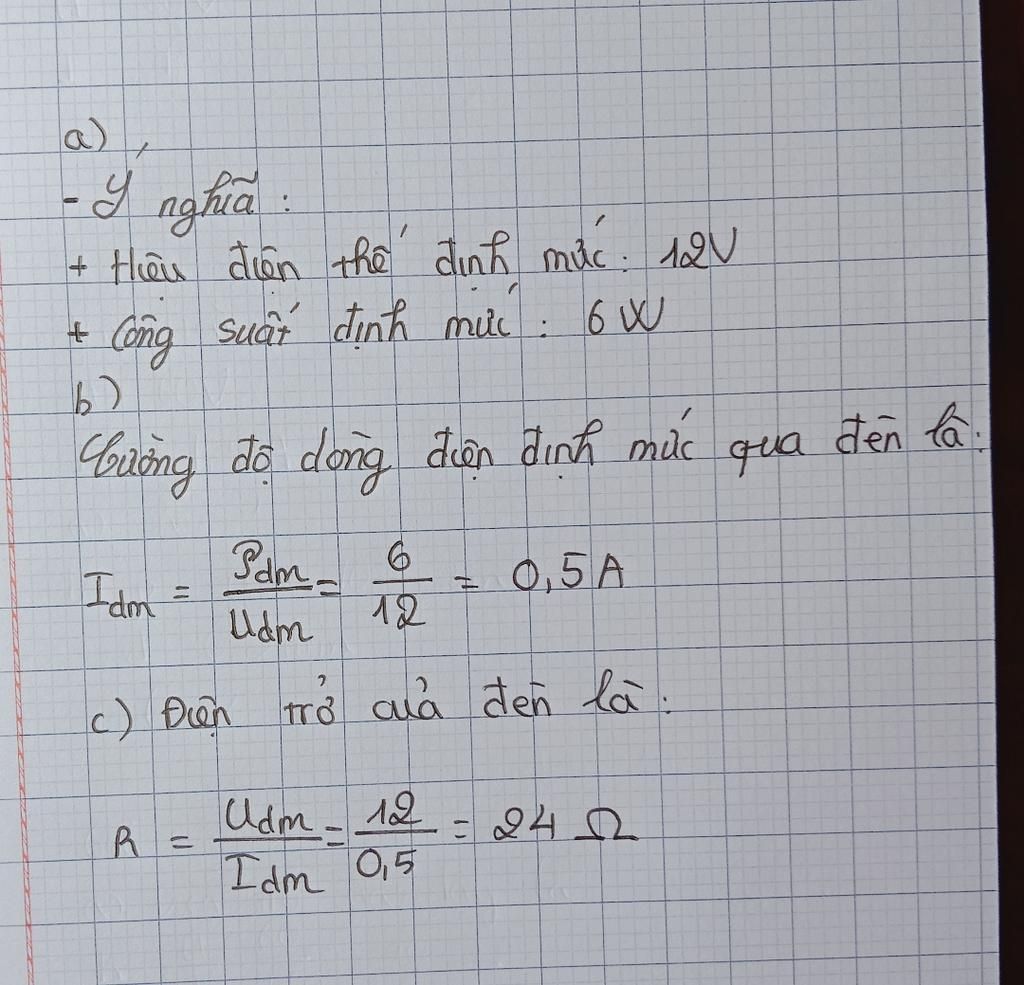 a)
- Ý nghĩã:
+ Hiệu điện thế định mức: 12V
+ Công suất định mức: 6W
b)
Cường độ dòng điện định mức qua đèn là:
I_dm = P_dm / U_dm = 6 / 12 = 0,5 A
c) Điện trở của đèn là:
R = U_dm / I_dm = 12 / 0,5 = 24 Ω